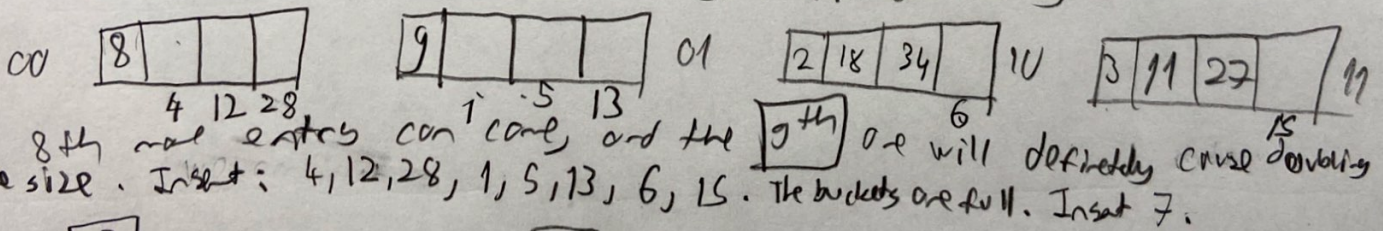 00 8 9 01 2 18 34 10 3 11 27 11
4 12 28 1 5 13 6 15
8th more entry can come, and the 9th one will definetely cause doubling
size. Insert: 4, 12, 28, 1, 5, 13, 6, 15. The buckets are full. Insert 7.